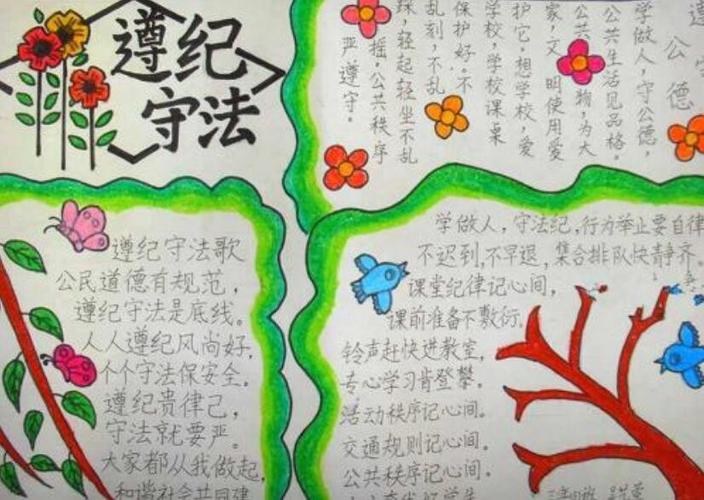 遵纪
守法
公德
学做人，守公德，
公共生活见品格。
公共物，为大
家，文明使用爱
护它。想学校，爱
学校，学校课桌
保护好。不
乱刻，不乱
踩，轻起轻坐不乱
摇。公共秩序
严遵守。
遵纪守法歌
公民道德有规范，
遵纪守法是底线。
人人遵纪风尚好，
个个守法保安全。
遵纪贵律己，
守法就要严。
大家都从我做起，
和谐社会共同建
学做人，守法纪，行为举止要自律
不迟到，不早退，集合排队快静齐。
课堂纪律记心间，
课前准备不敷衍。
铃声赶快进教室，
专心学习肯登攀。
活动秩序记心间。
交通规则记心间。
公共秩序记心间。